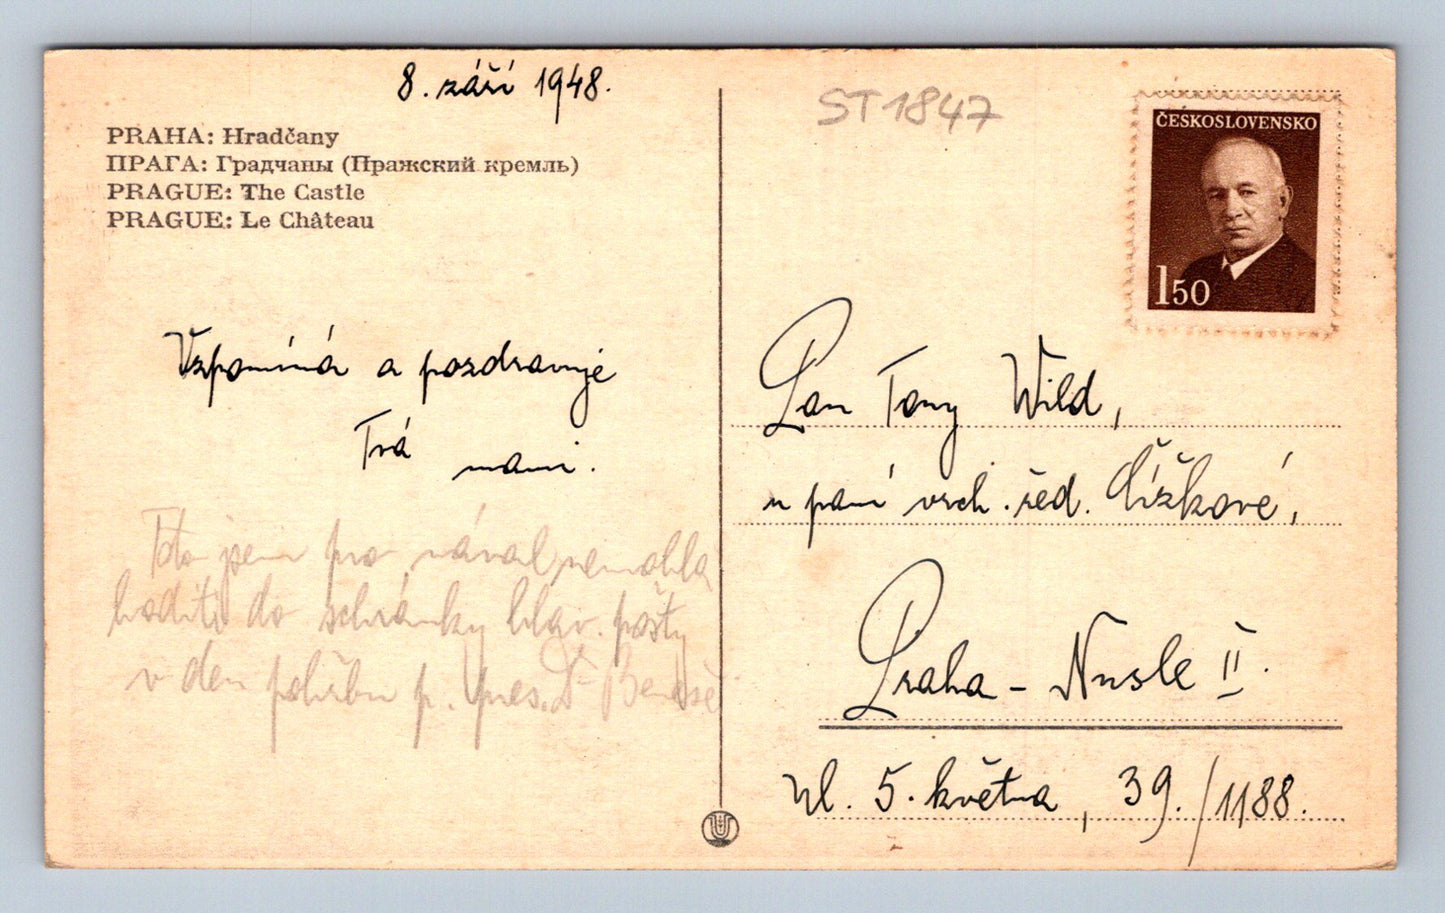 8. září 1948.
PRAHA: Hradčany
ПРАГА: Градчаны (Пражский кремль)
PRAGUE: The Castle
PRAGUE: Le Château
Vzpomíná a pozdravuje
Tvá mami.
Toto jsem pro nával nemohla
hoditi do schránky hlav. pošty
v den pohřbu p. pres. Dr Beneše
ST1847
ČESKOSLOVENSKO
150
Pan Tony Wild,
u paní vrch. řed. Čížkové,
Praha - Nusle II.
Ul. 5. května, 39./1188.